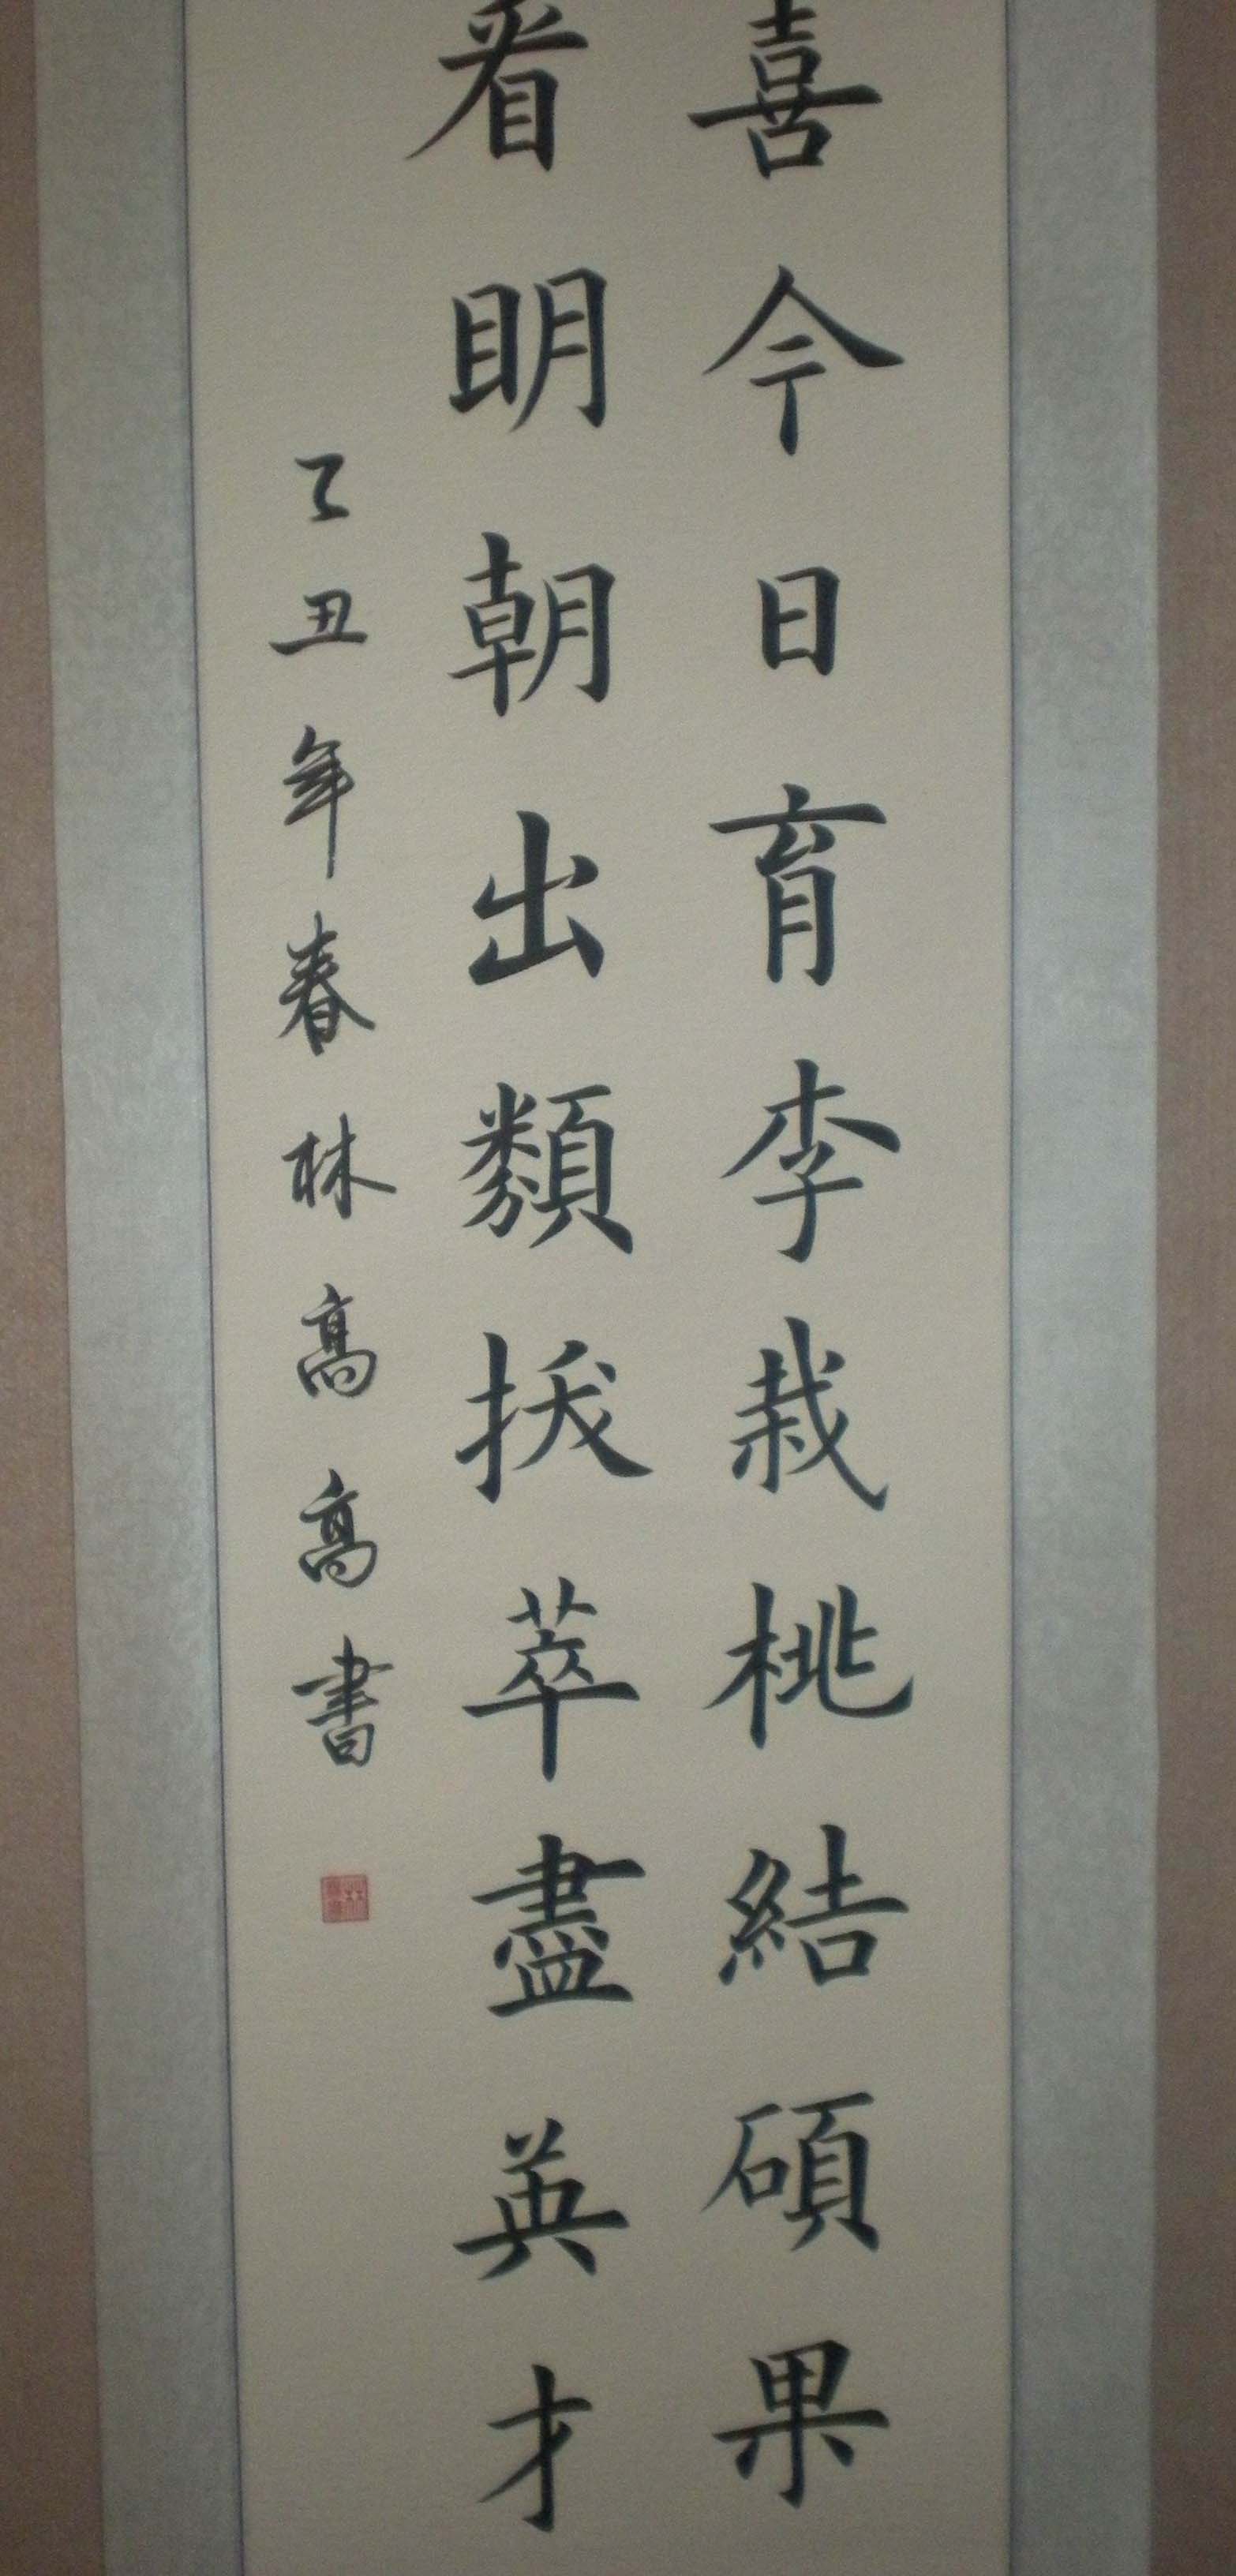 喜今日育李栽桃結碩果
看明朝出類拔萃盡英才
乙丑年春林高高書